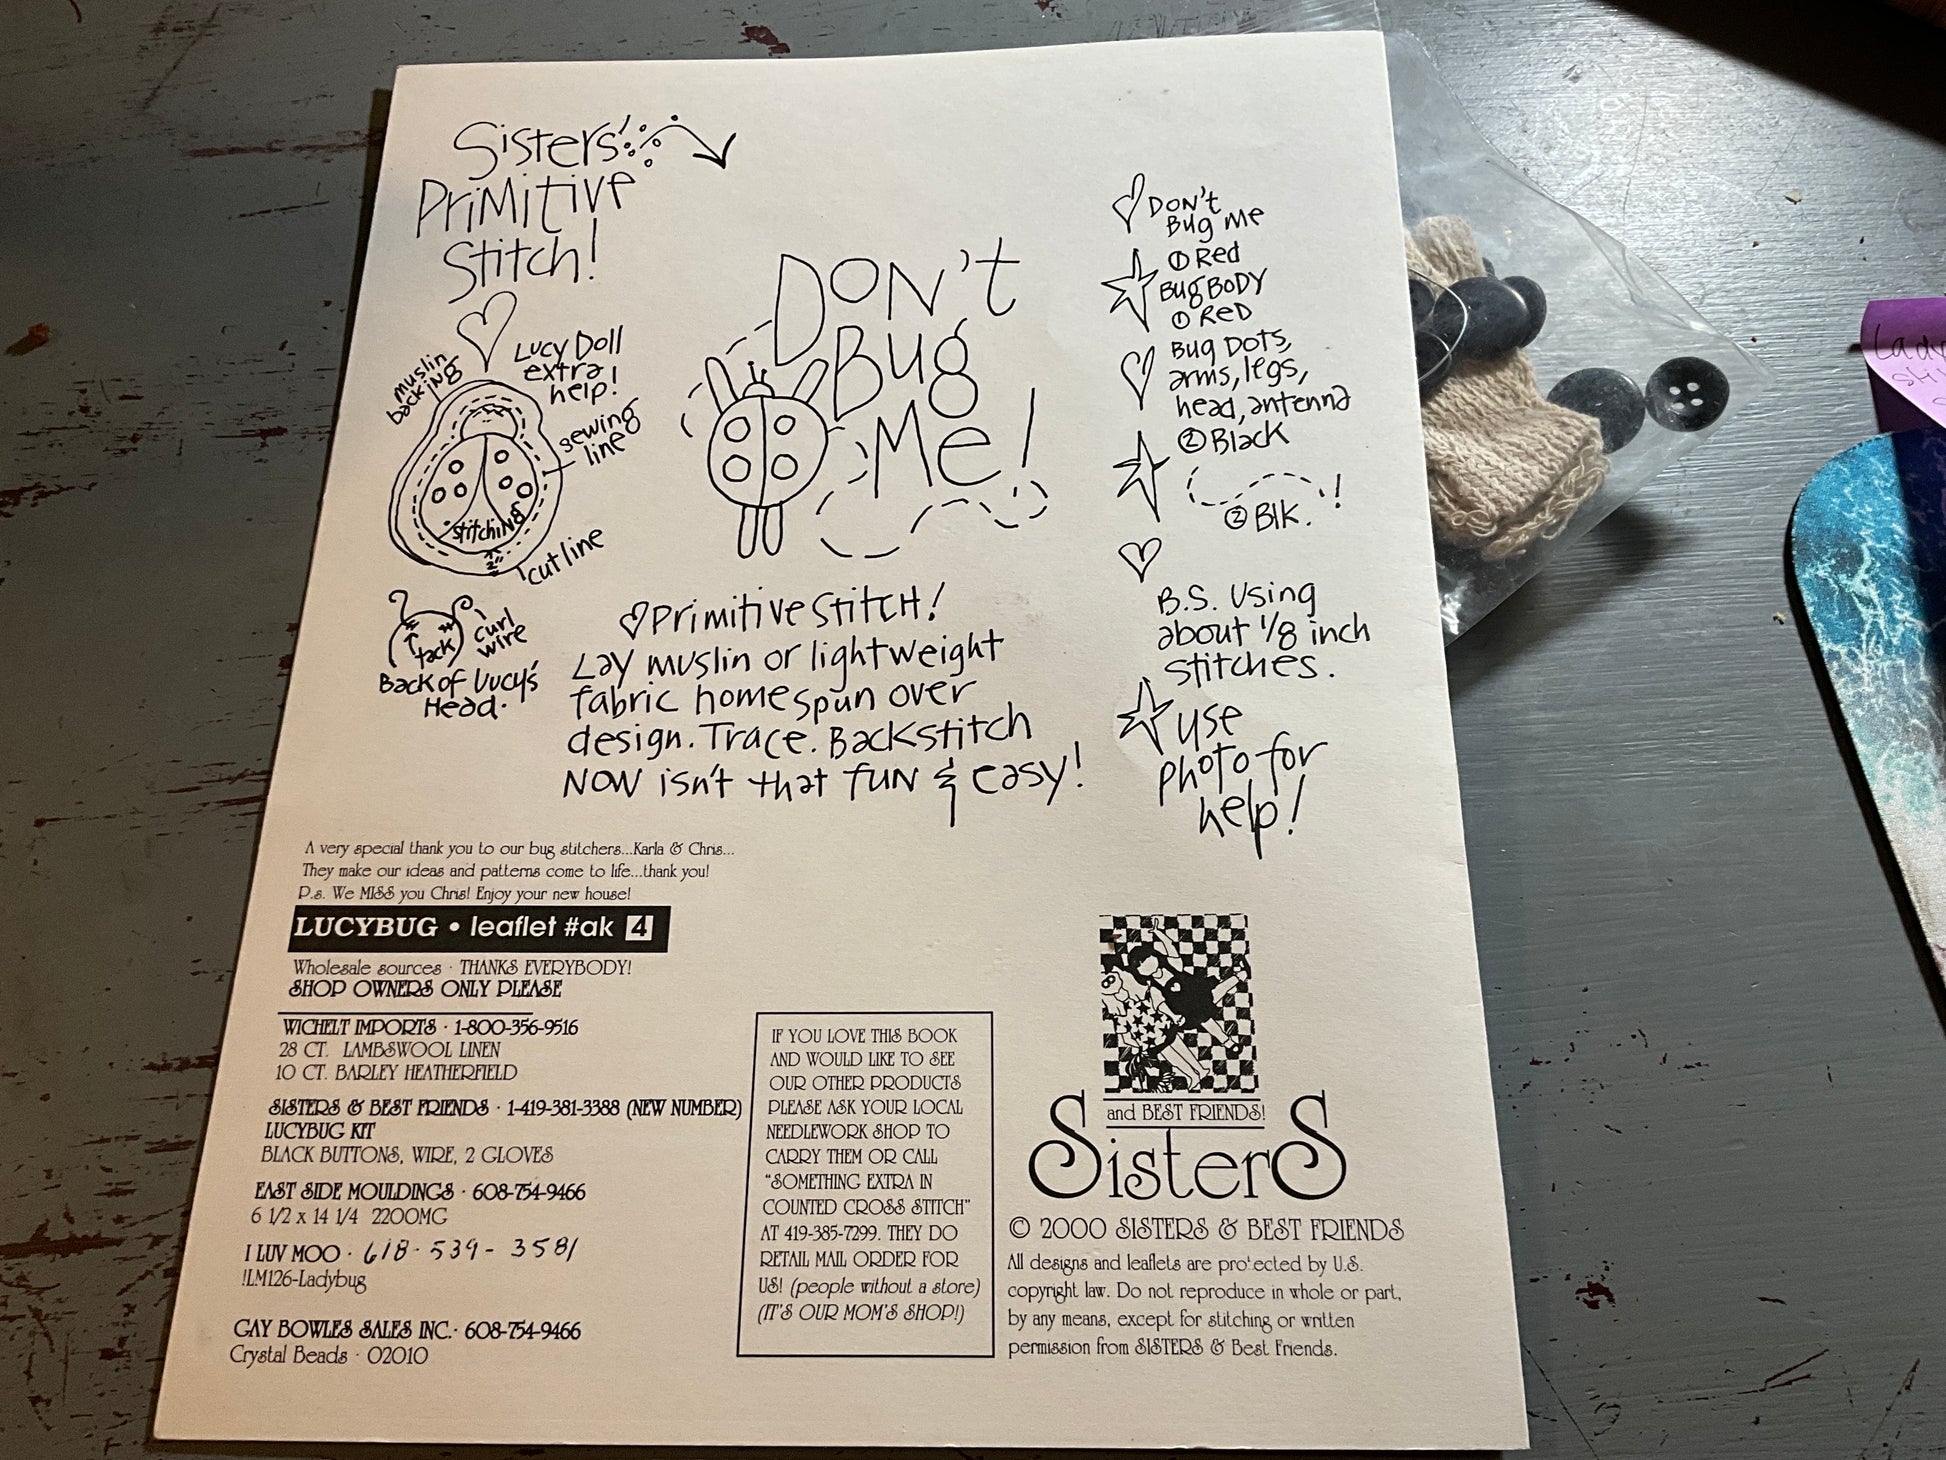 Sisters'
Primitive
Stitch!
muslin
backing
Lucy Doll
extra
help!
sewing
line
stitching
2"
cut line
tack
curl
wire
Back of Lucy's
Head.
DON't
Bug
Me!
Primitive Stitch!
Lay muslin or lightweight
fabric homespun over
design. Trace. Backstitch
NOW isn't that fun & easy!
DON't
Bug Me
① Red
Bug BODY
① Red
Bug DOTS,
arms, legs,
head, antenna
② Black
② Blk. !
B.S. Using
about 1/8 inch
stitches.
use
photo for
help!
A very special thank you to our bug stitchers...Karla & Chris...
They make our ideas and patterns come to life...thank you!
P.s. We MISS you Chris! Enjoy your new house!
LUCYBUG • leaflet #ak 4
Wholesale sources · THANKS EVERYBODY!
SHOP OWNERS ONLY PLEASE
WICHELT IMPORTS · 1-800-356-9516
28 CT. LAMBSWOOL LINEN
10 CT. BARLEY HEATHERFIELD
SISTERS & BEST FRIENDS · 1-419-381-3388 (NEW NUMBER)
LUCYBUG KIT
BLACK BUTTONS, WIRE, 2 GLOVES
EAST SIDE MOULDINGS · 608-754-9466
6 1/2 x 14 1/4 2200MG
I LUV MOO · 618-539-3581
!LM126-Ladybug
GAY BOWLES SALES INC. · 608-754-9466
Crystal Beads · 02010
IF YOU LOVE THIS BOOK
AND WOULD LIKE TO SEE
OUR OTHER PRODUCTS
PLEASE ASK YOUR LOCAL
NEEDLEWORK SHOP TO
CARRY THEM OR CALL
"SOMETHING EXTRA IN
COUNTED CROSS STITCH"
AT 419-385-7299. THEY DO
RETAIL MAIL ORDER FOR
US! (people without a store)
(IT'S OUR MOM'S SHOP!)
and BEST FRIENDS!
SisterS
© 2000 SISTERS & BEST FRIENDS
All designs and leaflets are pro'ected by U.S.
copyright law. Do not reproduce in whole or part,
by any means, except for stitching or written
permission from SISTERS & Best Friends.